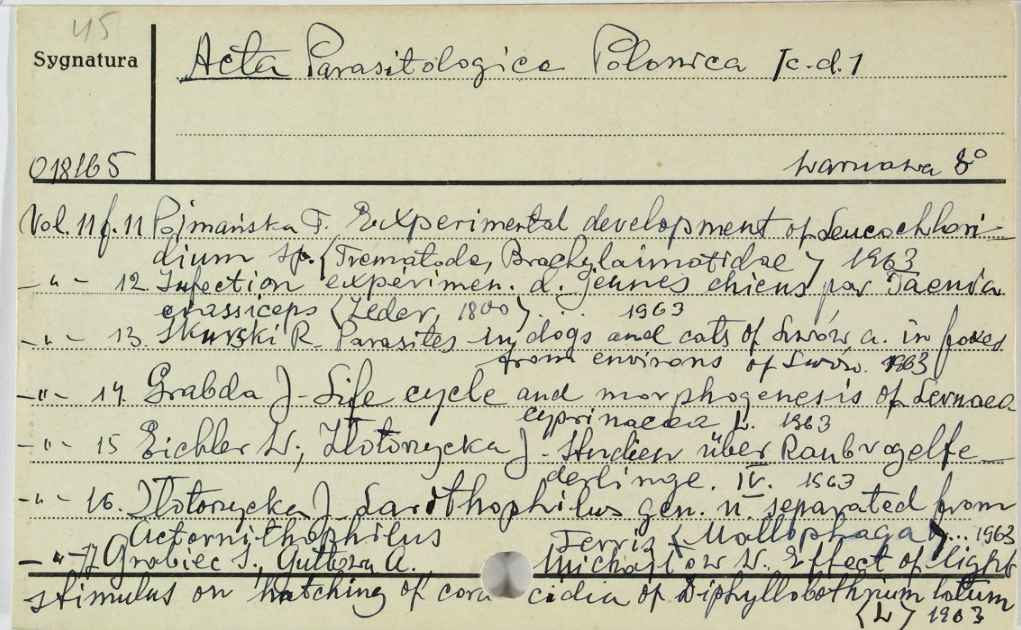 45
Sygnatura
Acta Parasitologica Polonica [c.d.]
018165
Warszawa 8°
Vol. 11 f. 11 Pojmańska T. Experimental development of Leucochlori-
dium sp. (Trematoda, Brachylaimatidae) 1963
-„- 12. Infection expérimen. d. jeunes chiens par Taenia
crassiceps (Zeder, 1800) . . 1963
-„- 13. Skurski R. Parasites in dogs and cats of Lwów a. in foxes
from environs of Lwów. 1963
-„- 14. Grabda J - Life cycle and morphogenesis of Lernaea
cyprinacea L. 1963
-„- 15 Eichler W; Złotorzycka J - Studien über Raubvogelfe-
derlinge. IV. 1963
-„- 16. Złotorzycka J Larithophilus gen. n. separated from
Actornithophilus Ferris (Mallophaga) ... 1963
-„- 17 Grabiec S., A. Michajłow W. Effect of light
stimulus on hatching of coracidia of Diphyllobothrium latum
(L) 1963